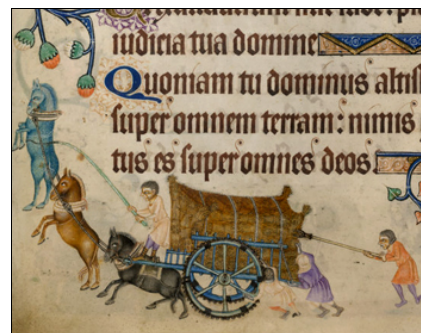 iudicia tua domine
Quoniam tu dominus altiss
super omnem terram: nimis
tus es super omnes deos.